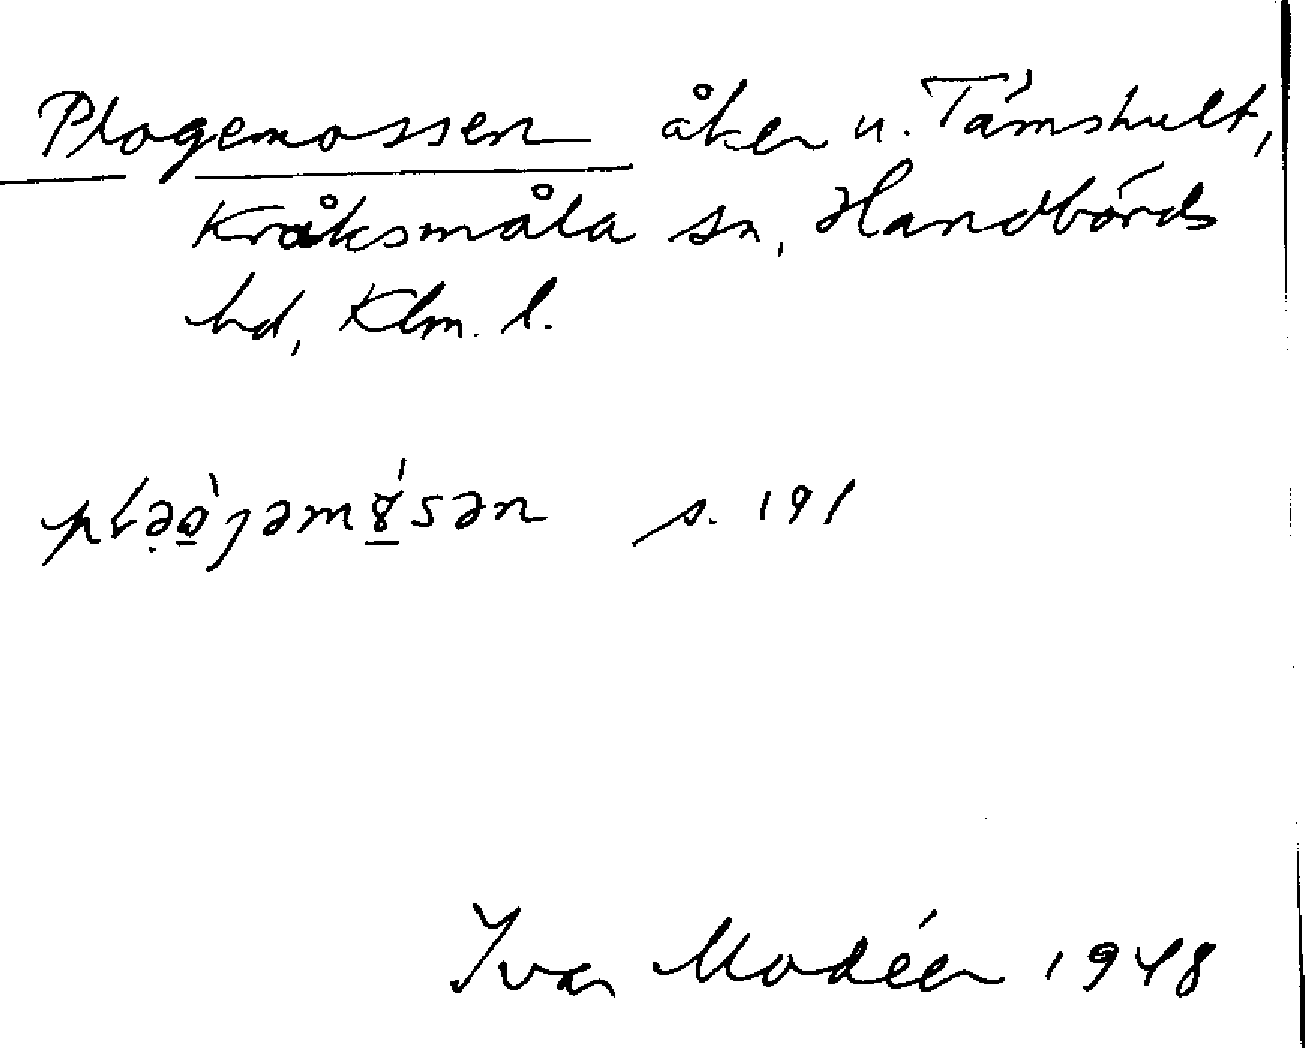 Plogemossen åker u. Tämshult,
Kråksmåla sn, Handbörds
hd, Klm. l.
s. 191
Ivar Modéer 1948